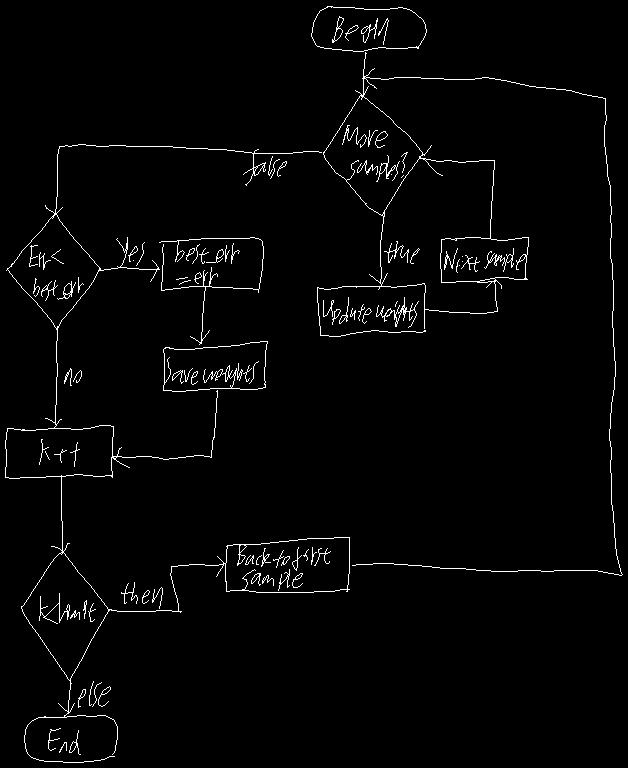 Begin
More
samples?
false
true
Next sample
Update weights
Err<
best_err
yes
best_err
=err
Save weights
no
K++
K<limit
then
Back to first
sample
else
End